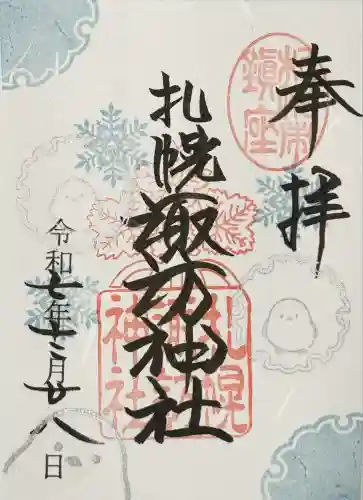 奉拝
札幌鎮座
札幌諏訪神社
札幌諏訪神社
令和七年十二月廿八日